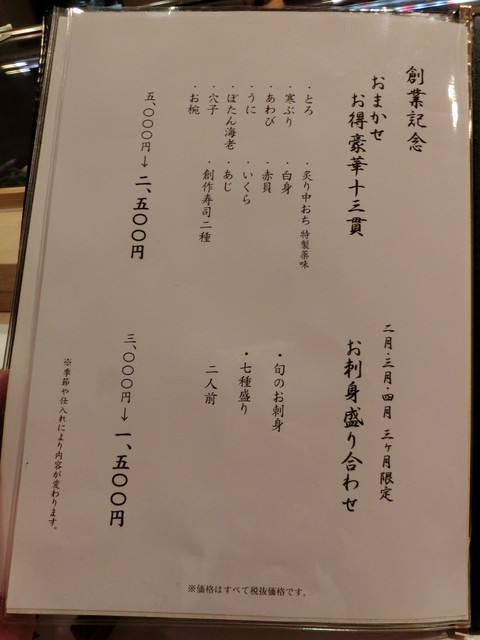 創業記念
おまかせ
お得豪華十三貫
・とろ
・寒ぶり
・あわび
・うに
・ぼたん海老
・穴子
・お椀
・炙り中おち 特製薬味
・白身
・赤貝
・いくら
・あじ
・創作寿司二種
五、〇〇〇円→二、五〇〇円
二月・三月・四月 三ヶ月限定
お刺身盛り合わせ
・旬のお刺身
・七種盛り
二人前
三、〇〇〇円→一、五〇〇円
※季節や仕入れにより内容が変わります。
※価格はすべて税抜価格です。